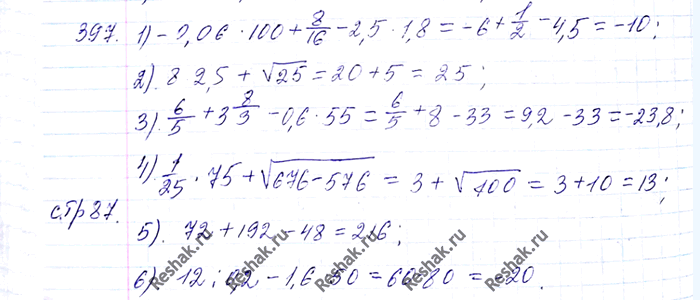 397. 1) -0,06 · 100 + 8/16 - 2,5 · 1,8 = -6 + 1/2 - 4,5 = -10;
2). 8 2,5 + √25 = 20 + 5 = 25;
3). 6/5 + 3 8/3 - 0,6 · 55 = 6/5 + 8 - 33 = 9,2 - 33 = -23,8;
4). 1/25 · 75 + √676-576 = 3 + √100 = 3 + 10 = 13;
стр 87.
5). 72 + 192 - 48 = 216;
6) 12 : 0,2 - 1,6 · 50 = 60-80 = -20.
Reshak.ru Reshak.ru Reshak.ru Reshak.ru Reshak.ru